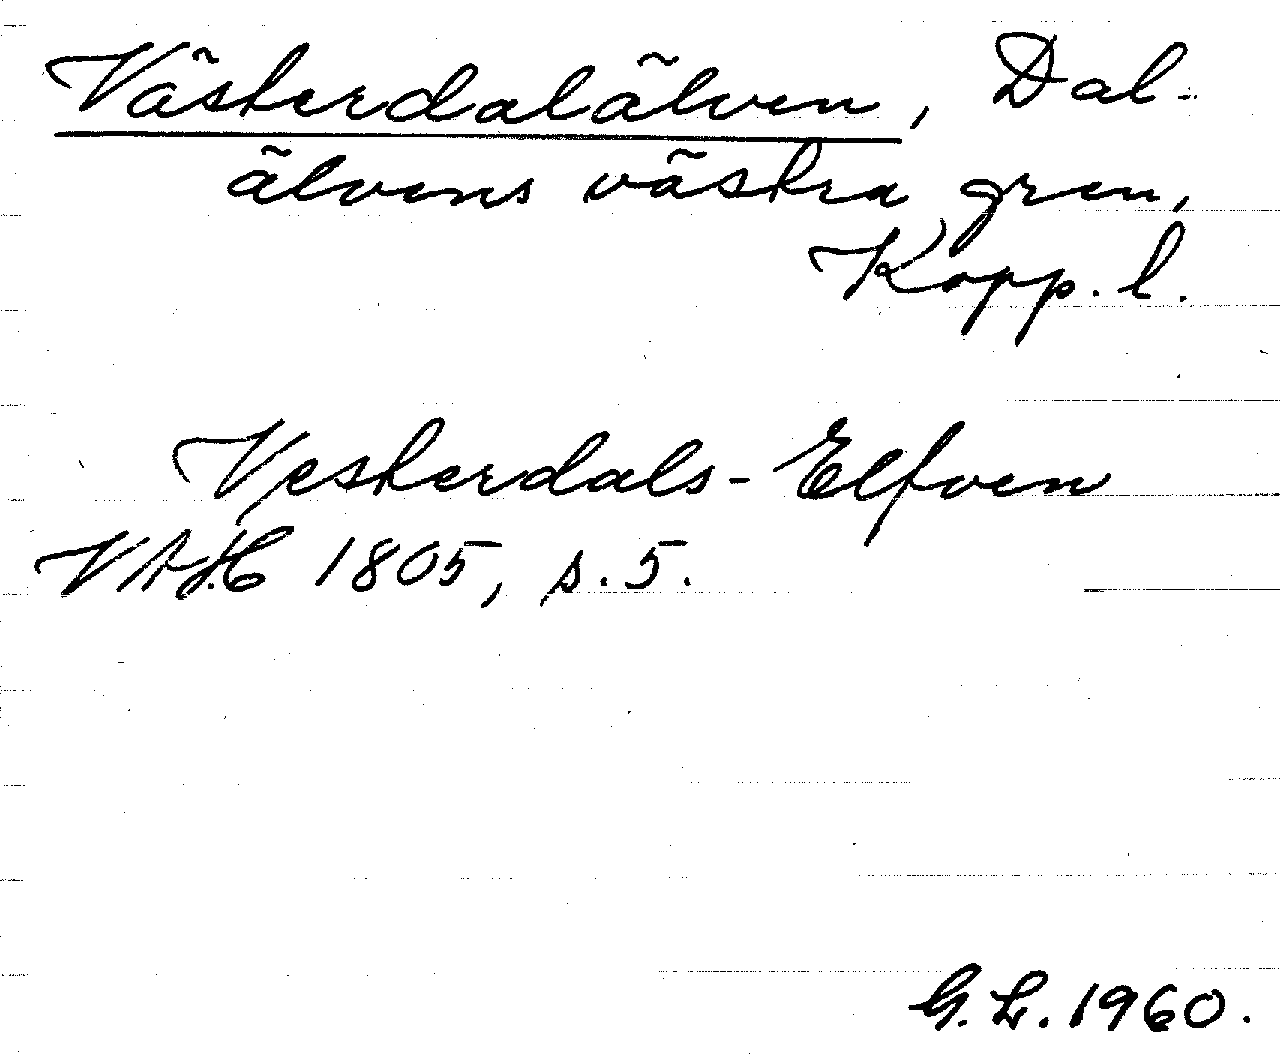 Västerdalälven, Dal-
älvens västra gren,
Kopp. l.
Vesterdals-Elfven
VAH 1805, s. 5.
G. L. 1960.